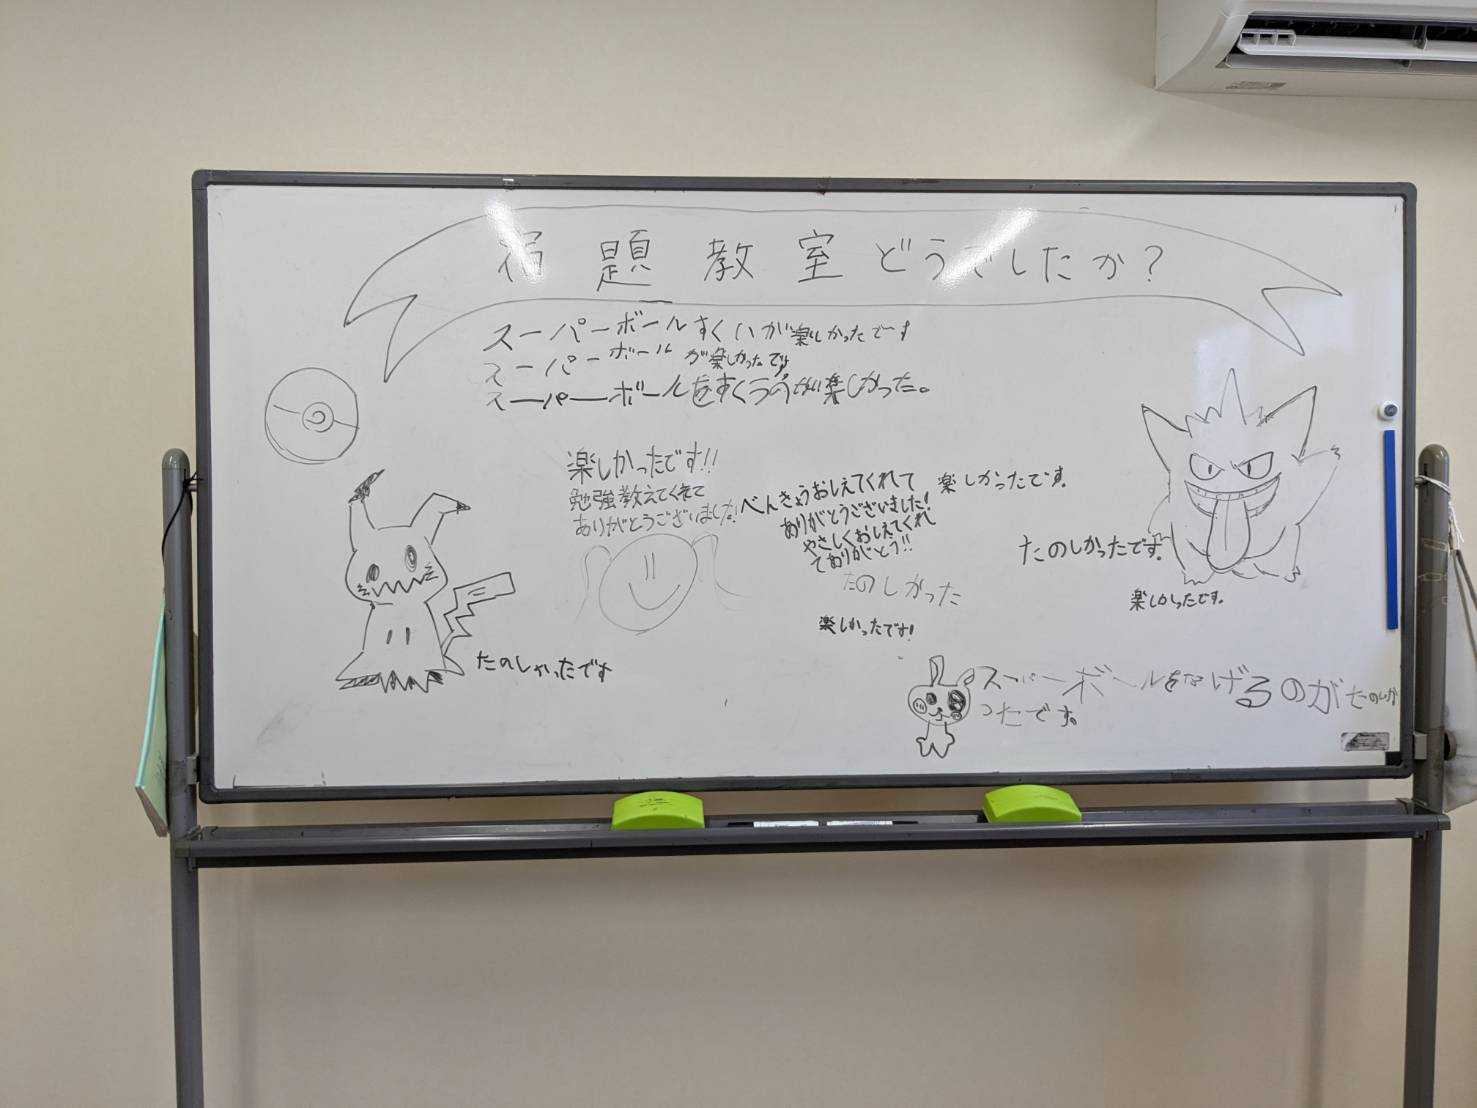 宿題教室どうでしたか?
スーパーボールすくいが楽しかったです
スーパーボールが楽しかったです
スーパーボールをすくうのが楽しかった。
楽しかったです!!
勉強教えてくれて
ありがとうございました!
べんきょうおしえてくれて
ありがとうございました!
やさしくおしえてくれ
てありがとう!!
楽しかったです。
たのしかったです。
たのしかった
楽しかったです。
楽しかったです!
たのしかったです
スーパーボールをなげるのがたのしか
ったです。